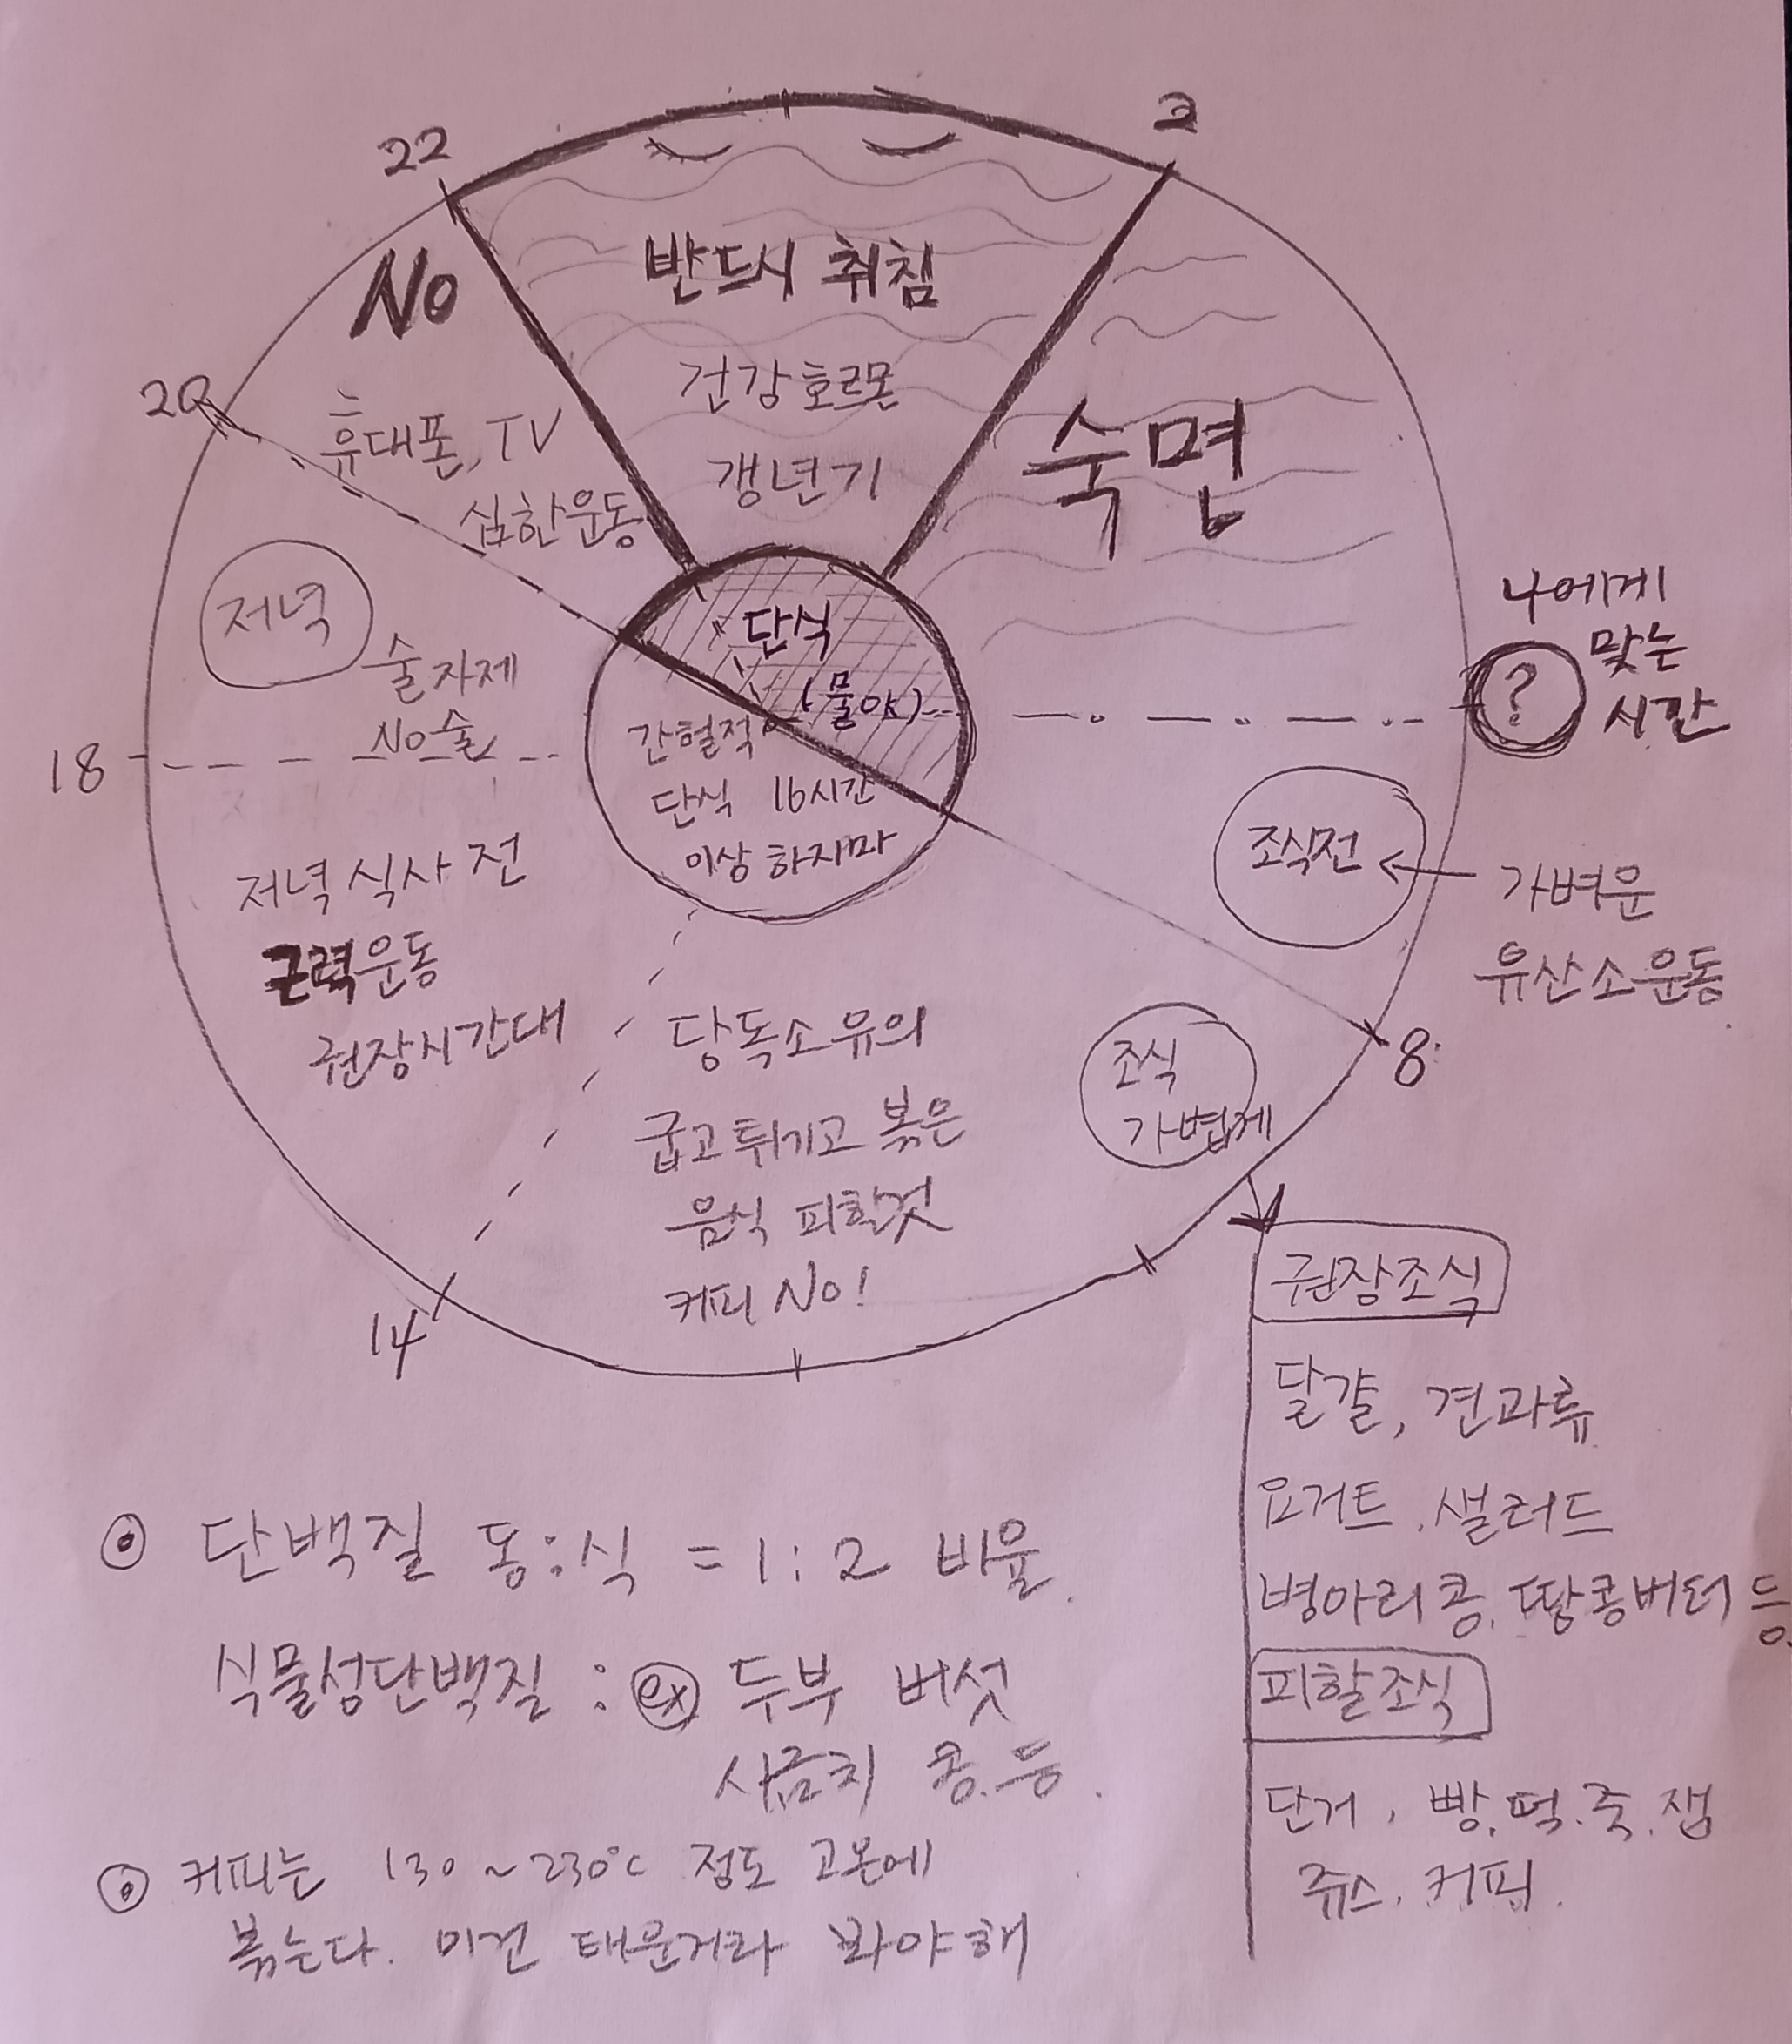 22
2
No
반드시 취침
20
휴대폰, TV
심한운동
건강호르몬
갱년기
숙면
저녁
술자제
No 술
18
단식
(물 OK)
간헐적
단식 16시간
이상 하지마
나에게
맞는
시간
?
조식전
가벼운
유산소운동
8
저녁 식사 전
근력운동
권장시간대
당독소유의
굽고 튀기고 볶은
음식 피할것
커피 No!
14
조식
가볍게
권장조식
달걀, 견과류
요거트, 샐러드
병아리콩, 땅콩버터 등
피할조식
단거, 빵, 떡, 죽, 잼
쥬스, 커피.
⊙ 단백질 동:식 = 1:2 비율.
식물성단백질 : ex 두부 버섯
시금치 콩. 등.
⊙ 커피는 130~230°C 정도 고온에
볶는다. 이건 태운거라 봐야해